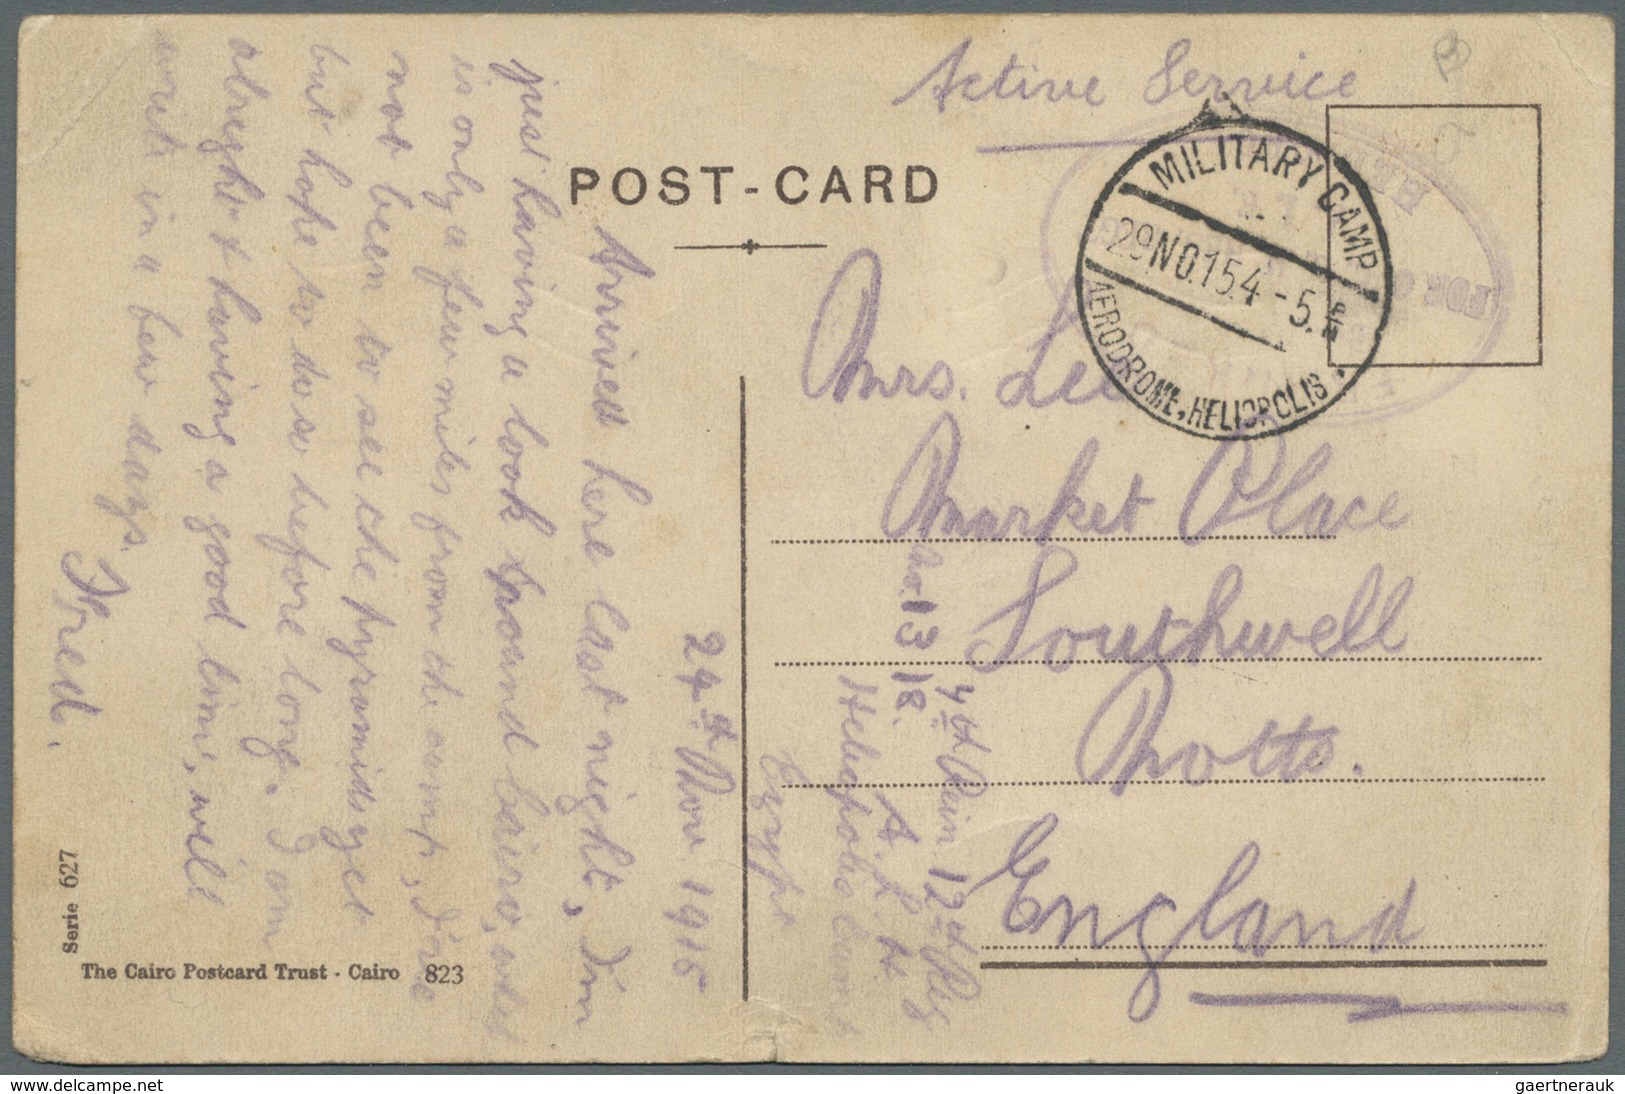 Active Service
POST-CARD
MILITARY CAMP
29 NO.15 4-5. PM
AERODROME, HELIOPOLIS
FOR
Mrs. Lee
Market Place
Southwell
Notts.
England
No. 1318.
4th Rein 12th
A. L. H.
Heliopolis Camp
Egypt
24th Nov 1915
Arrived here last night, I'm
just having a look around Cairo, which
is only a few miles from the camp, I've
not been to see the pyramids yet
but hope to do so before long. I am
alright & having a good time, will
write in a few days.
Fred.
Serie 627
The Cairo Postcard Trust - Cairo 823
gaertnerauk
www.delcampe.net